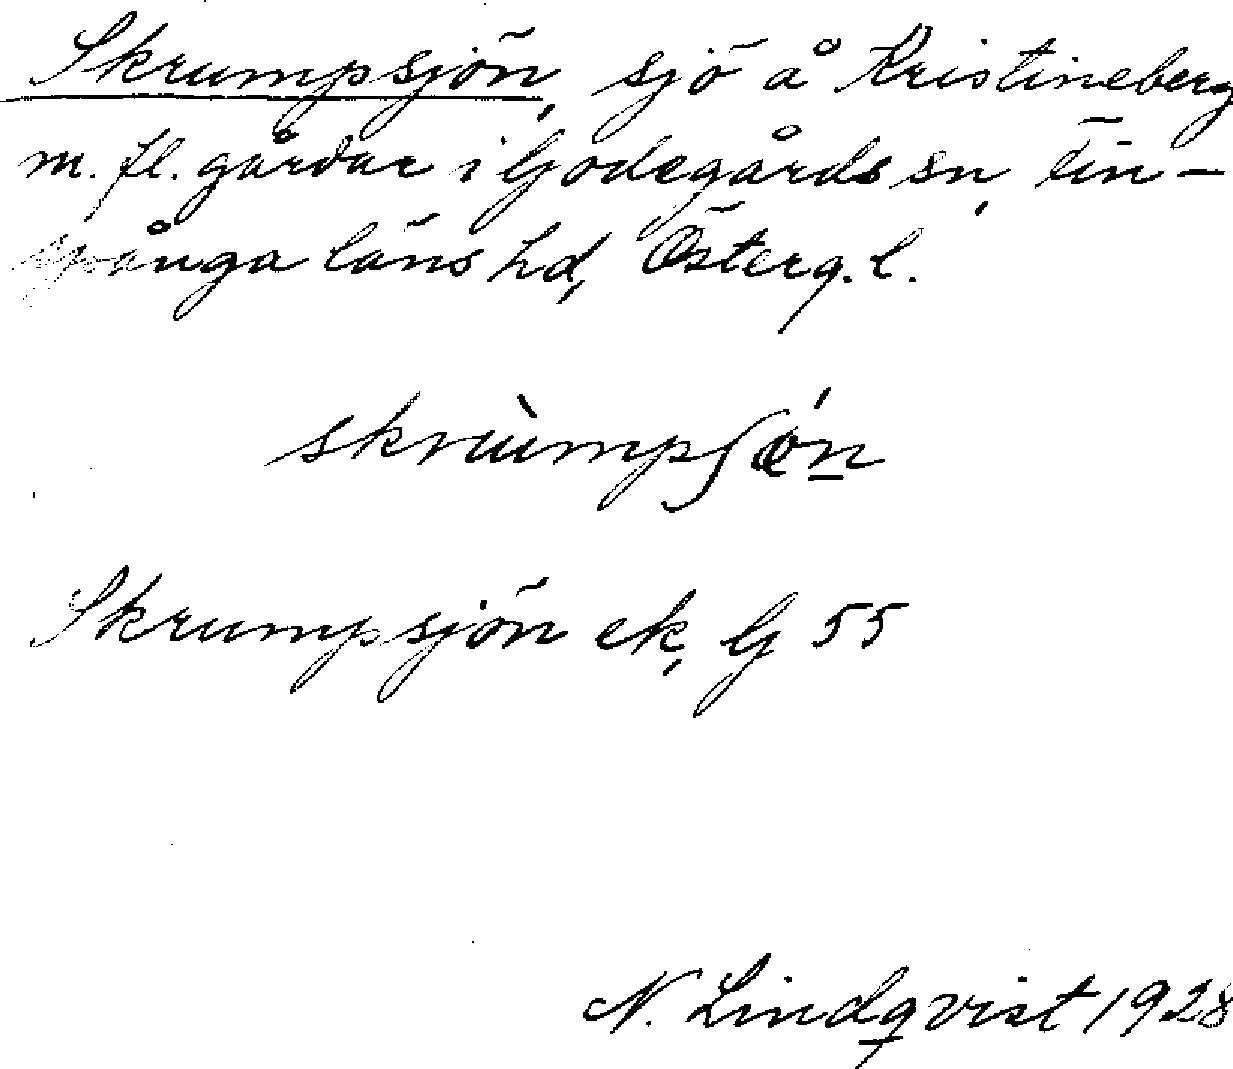 Skrumpsjön, sjö å Kristineberg
m. fl. gårdar i Godegårds sn, Fin-
spånga läns hd, Österg. l.
skrùmpʃǿn
Skrumpsjön ek, G 55
N. Lindqvist 1928